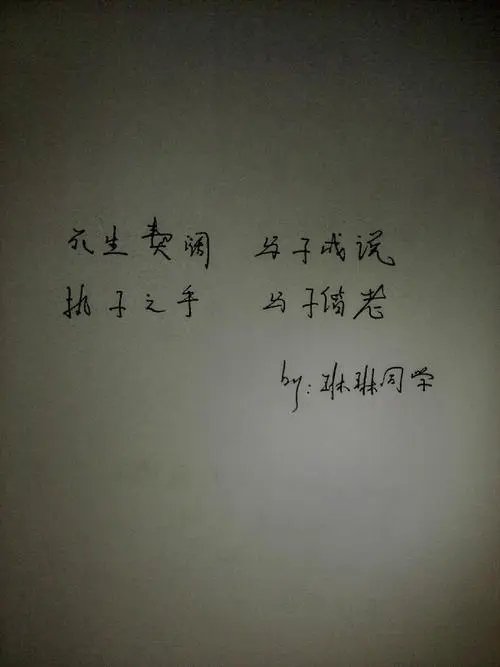 死生契阔 与子成说
执子之手 与子偕老
by:琳琳同学